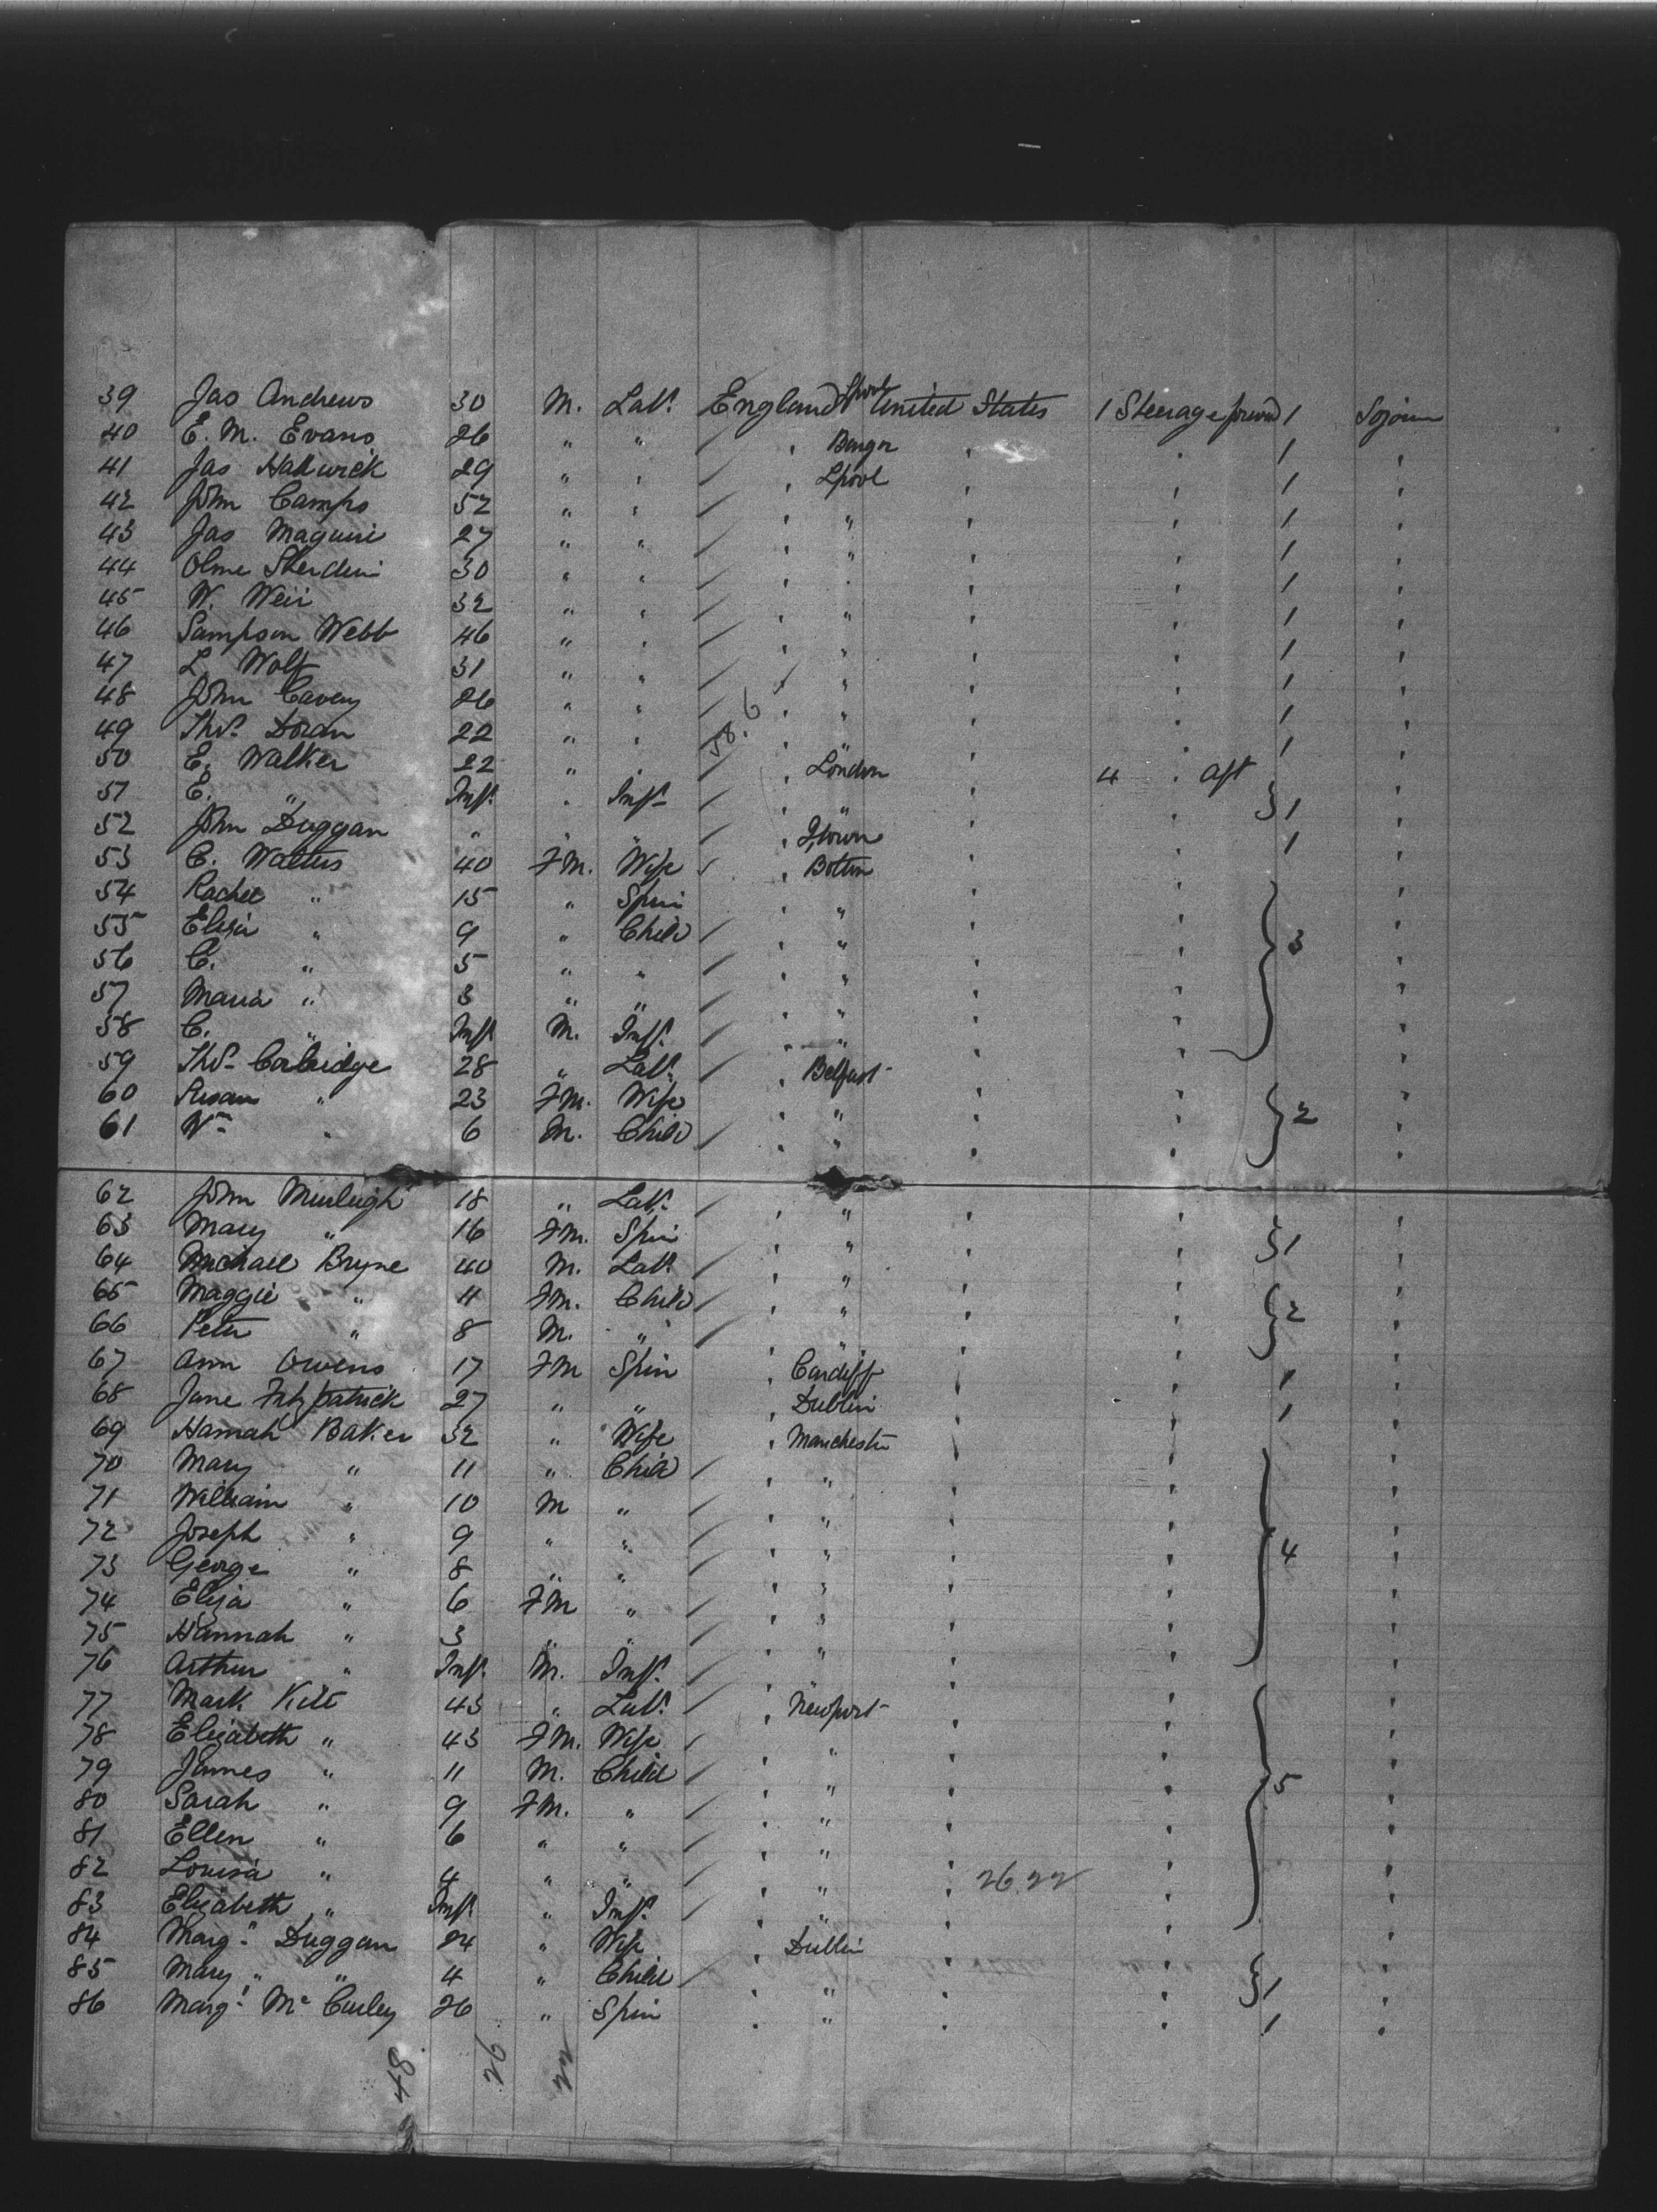 39 Jas Andrews 30 M. Labr. England Lpool United States 1 Steerage forwd 1 Sojourn
40 E. M. Evans 26 " " / ' Bangor ' ' 1 '
41 Jas Hadwick 29 " ' / ' Lpool ' ' 1 '
42 John Camps 52 " ' / ' " ' ' 1 '
43 Jas Maguire 27 " " / ' " ' ' 1 '
44 30 " " / ' " ' ' 1 '
45 W. Weir 32 " ' / ' " ' ' 1 '
46 Sampson Webb 46 " ' / ' " ' ' 1 '
47 L Wolf 31 " " / ' " ' ' 1 '
48 John Cavey 26 " " / ' " ' ' 1 '
49 Thos. Doran 22 " ' / 58.6 ' " ' ' 1 '
50 E. Walker 22 " ' / ' London ' 4 ' aft
51 E. " Inft. " Inft. / ' " ' ' } 1 '
52 John Duggan " " " / ' Qtown ' ' 1 '
53 C. Walters 40 FM. Wife / ' Bolton ' ' '
54 Rachel " 15 " Spin ' " ' ' '
55 Eliza " 9 " Child / ' " ' ' } 3 '
56 C. " 5 " " / ' " ' ' '
57 Maria " 3 " " / ' " ' ' '
58 C. " Inft. M. Inft. / ' " ' ' '
59 Thos. Corbridge 28 " Labr. / ' Belfast ' ' '
60 Susan " 23 FM. Wife ' " ' ' } 2 '
61 Wm " 6 M. Child / ' " ' ' '
62 John Murleigh 18 " Labr. / ' " ' ' '
63 Mary " 16 FM. Spin ' " ' ' } 1 '
64 Michael Bryne 40 M. Labr. / ' " ' ' '
65 Maggie " 11 FM. Child / ' " ' ' } 2 '
66 Peter " 8 M. " / ' " ' ' '
67 Ann Owens 17 FM Spin ' Cardiff ' ' 1 '
68 Jane Fitzpatrick 27 " " ' Dublin ' ' 1 '
69 Hannah Baker 32 " Wife ' Manchester ' ' '
70 Mary " 11 " Child / ' " ' ' '
71 William " 10 M " / ' " ' ' '
72 Joseph " 9 " " / ' " ' ' } 4 '
73 George " 8 " " / ' " ' ' '
74 Eliza " 6 FM " / ' " ' ' '
75 Hannah " 3 " " / ' " ' ' '
76 Arthur " Inft. M. Inft. / ' " ' ' '
77 Mark Kite 43 " Labr. / ' Newport ' ' '
78 Elizabeth " 43 FM. Wife / ' " ' ' '
79 James " 11 M. Child / ' " ' ' } 5 '
80 Sarah " 9 FM. " / ' " ' ' '
81 Ellen " 6 " " / ' " ' ' '
82 Louisa " 4 " " / ' " ' 26.22 ' '
83 Elizabeth " Inft. " Inft. / ' " ' ' '
84 Margt. Duggan 24 " Wife ' Dublin ' ' '
85 Mary " " 4 " Child / ' " ' ' } 1 '
86 Margt. Mc Curley 26 " Spin ' " ' ' 1 '
48 26 22